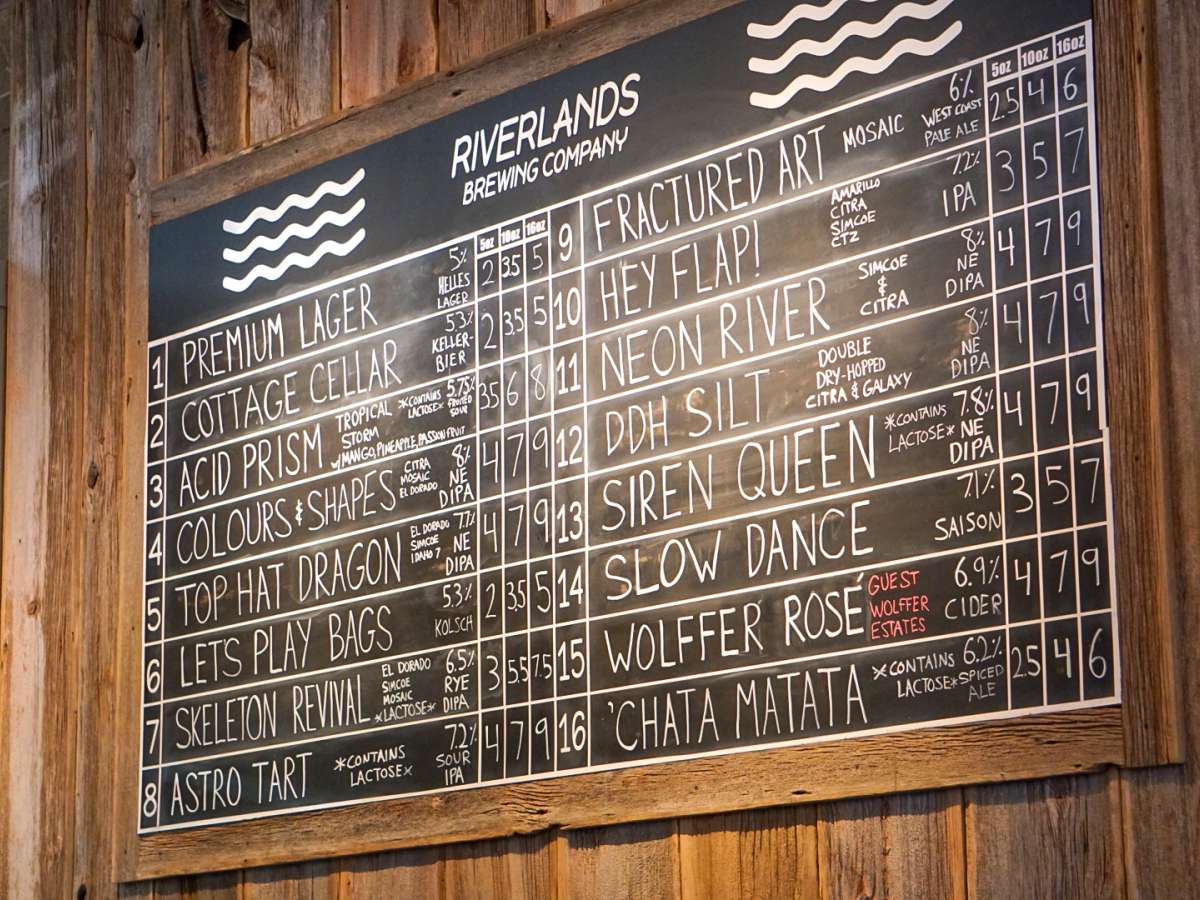 RIVERLANDS
BREWING COMPANY
5oz 10oz 16oz
1 PREMIUM LAGER 5% HELLES LAGER 2 3.5 5
2 COTTAGE CELLAR 5.3% KELLER-BIER 2 3.5 5
3 ACID PRISM TROPICAL STORM *CONTAINS LACTOSE* 5.75% FRUITED SOUR 3.5 6 8
MANGO, PINEAPPLE, PASSION FRUIT
4 COLOURS & SHAPES CITRA MOSAIC EL DORADO 8% NE DIPA 4 7 9
5 TOP HAT DRAGON EL DORADO SIMCOE IDAHO 7 7.7% NE DIPA 4 7 9
6 LET'S PLAY BAGS 5.3% KOLSCH 2 3.5 5
7 SKELETON REVIVAL EL DORADO SIMCOE MOSAIC *LACTOSE* 6.5% RYE DIPA 3 5.5 7.5
8 ASTRO TART *CONTAINS LACTOSE* 7.2% SOUR IPA 4 7 9
5oz 10oz 16oz
9 FRACTURED ART MOSAIC 6% WEST COAST PALE ALE 2.5 4 6
10 HEY FLAP! AMARILLO CITRA SIMCOE CTZ 7.2% IPA 3 5 7
11 NEON RIVER SIMCOE & CITRA 8% NE DIPA 4 7 9
12 DDH SILT DOUBLE DRY-HOPPED CITRA & GALAXY 8% NE DIPA 4 7 9
13 SIREN QUEEN *CONTAINS LACTOSE* 7.8% NE DIPA 4 7 9
14 SLOW DANCE 7.1% SAISON 3 5 7
15 WOLFFER ROSÉ GUEST WOLFFER ESTATES 6.9% CIDER 4 7 9
16 'CHATA MATATA *CONTAINS LACTOSE* 6.2% SPICED ALE 2.5 4 6